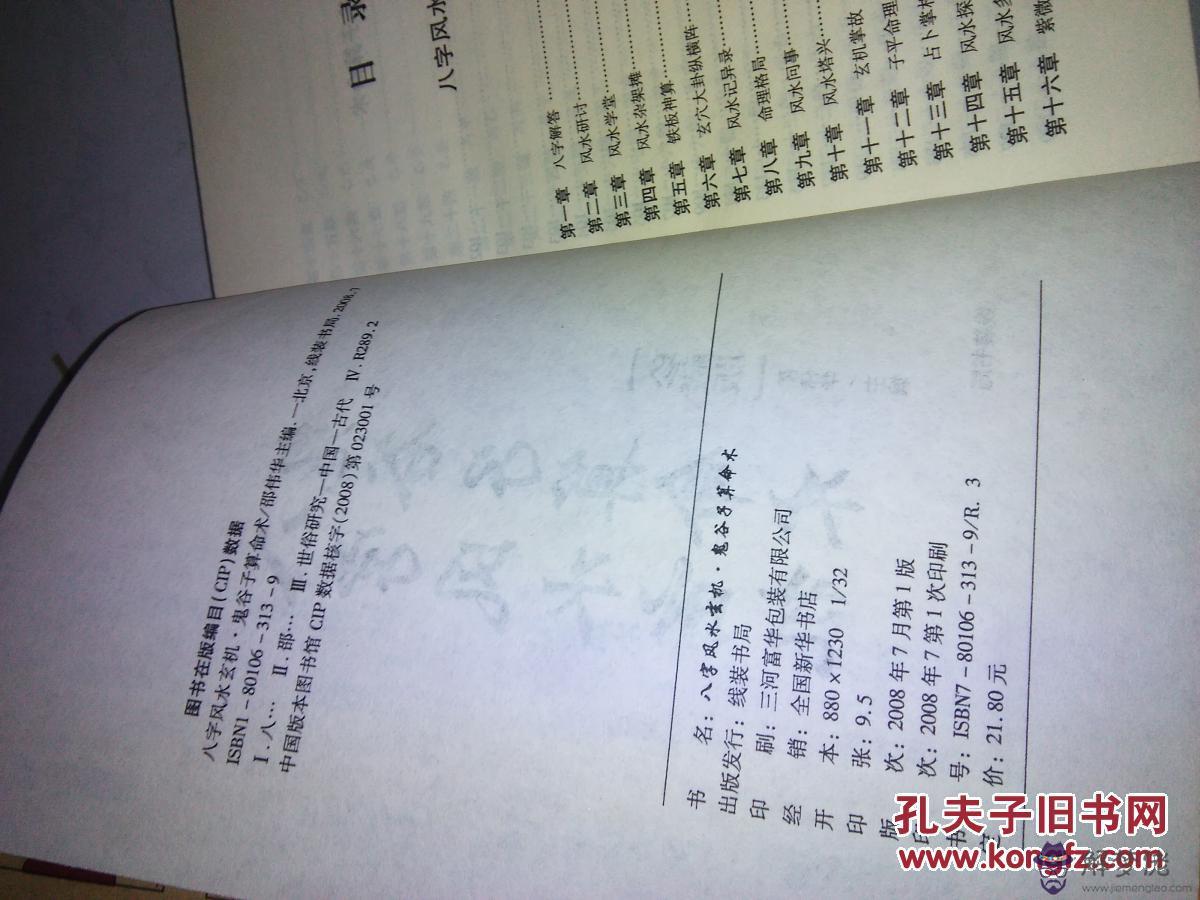 图书在版编目(CIP)数据
八字风水玄机·鬼谷子算命术/邵伟华主编.—北京,线装书局.2008.7
ISBN1-80106-313-9
Ⅰ.八… Ⅱ.邵… Ⅲ.世俗研究—中国—古代 Ⅳ.R289.2
中国版本图书馆CIP数据核字(2008)第023001号
书 名:八字风水玄机·鬼谷子算命术
出版发行:线装书局
印 刷:三河富华包装有限公司
经 销:全国新华书店
开 本:880×1230 1/32
印 张:9.5
版 次:2008年7月第1版
印 次:2008年7第1次印刷
书 号:ISBN7-80106-313-9/R.3
定 价:21.80元
目 录
八字风水
第一章 八字解答
第二章 风水研讨
第三章 风水学堂
第四章 风水杂架摊
第五章 铁板神算
第六章 玄穴大卦纵横阵
第七章 风水记异录
第八章 命理格局
第九章 风水问事
第十章 风水塔兴
第十一章 玄机掌故
第十二章 子平命理
第十三章 占卜掌
第十四章 风水探
第十五章 风水
第十六章 紫微
孔夫子旧书网
www.kongfz.com
解梦佬
www.jiemenglao.com